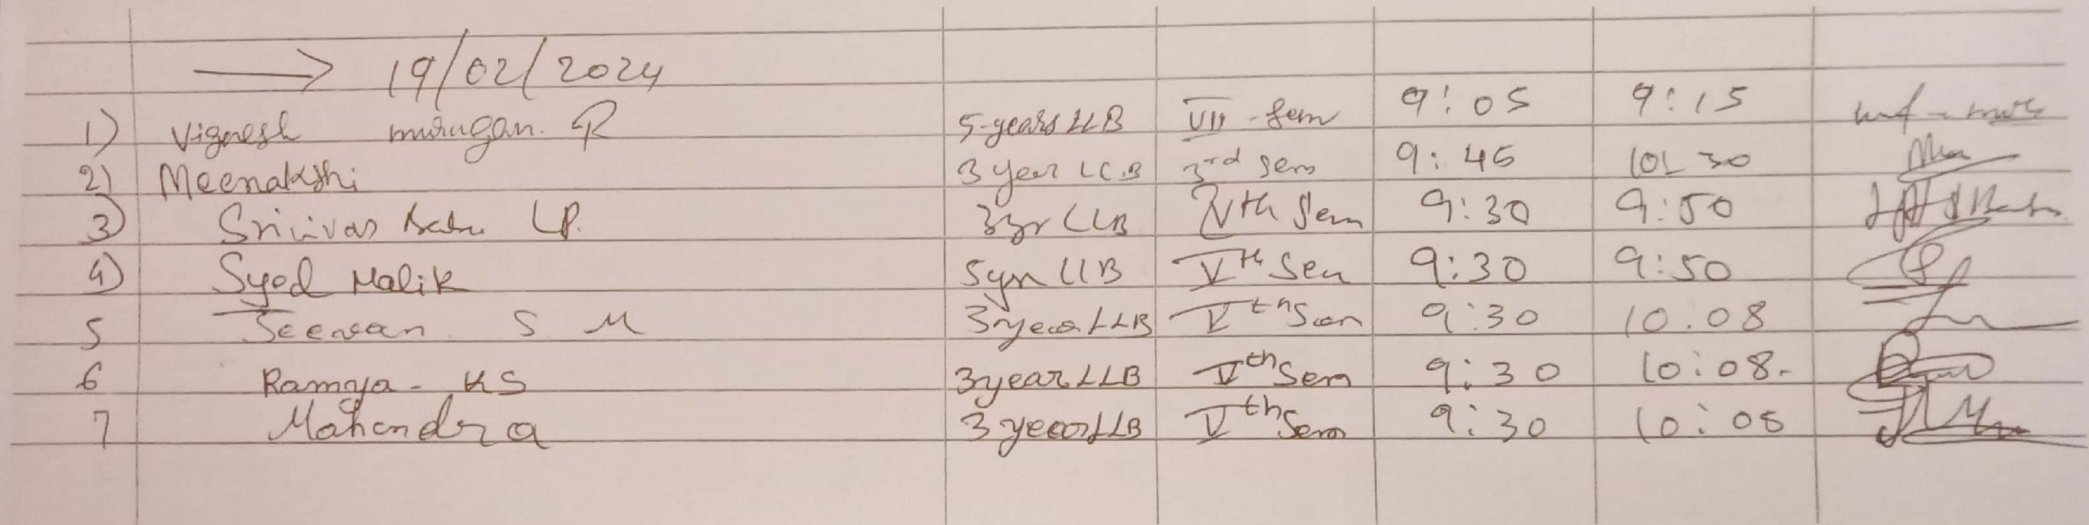 → 19/02/2024
1) Vignesh murugan. R 5-years LLB VII - Sem 9:05 9:15
2) Meenakshi 3 year LLB 3rd sem 9:45 10:30
3) Srinivas Babu LP. 3yr LLB IVth Sem 9:30 9:50
4) Syed Malik 5yr LLB Vth Sem 9:30 9:50
5 Jeevan S M 3year LLB Vth Sem 9:30 10.08
6 Ramya - KS 3year LLB Vth Sem 9:30 10:08.
7 Mahendra 3 year LLB Vth Sem 9:30 10:08